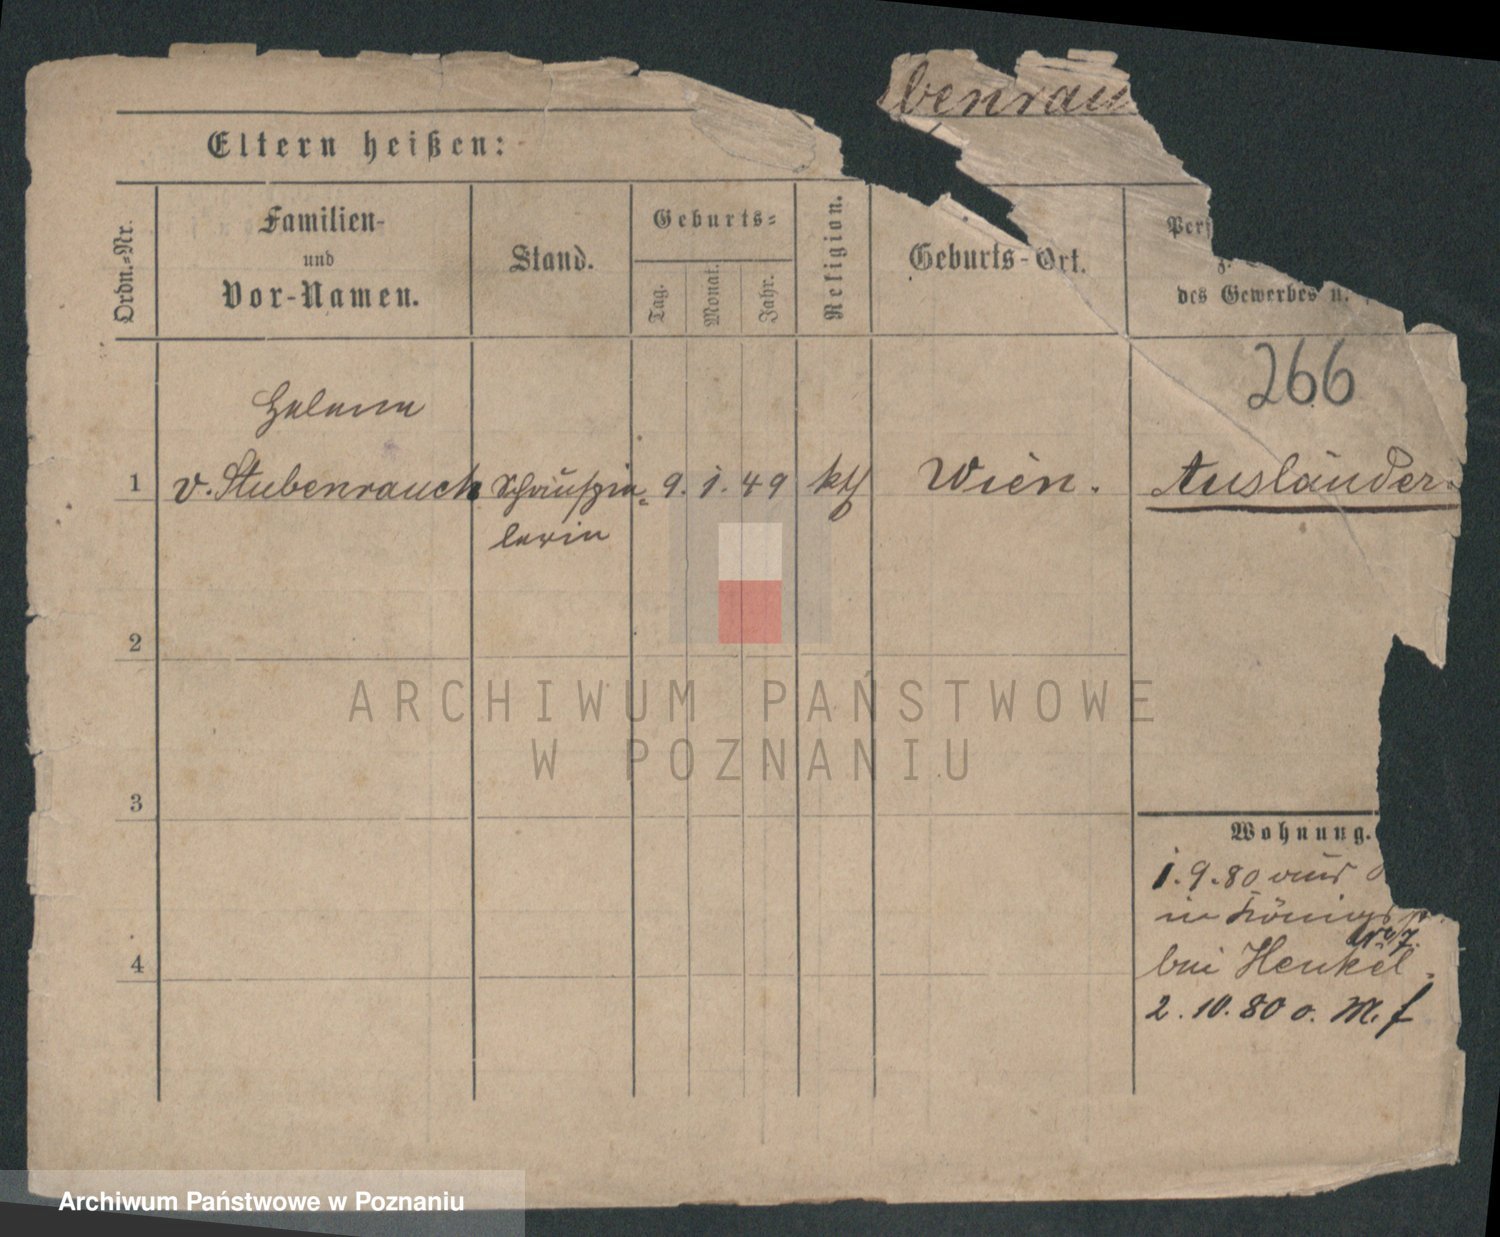 benrau
Eltern heißen:
Ordn.-Nr.
Familien-
und
Vor-Namen.
Stand.
Geburts-
Tag.
Monat.
Jahr.
Religion.
Geburts-Ort.
Pers
z.
des Gewerbes u.
266
Helene
1 v. Stubenrauch Schauspie- 9. 1. 49 kth Wien. Ausländer.
lerin
2
3
4
Wohnung.
1. 9. 80 aus
in Königs
bei Henkel.
2. 10. 80 o. M. f
ARCHIWUM PAŃSTWOWE
W POZNANIU
Archiwum Państwowe w Poznaniu